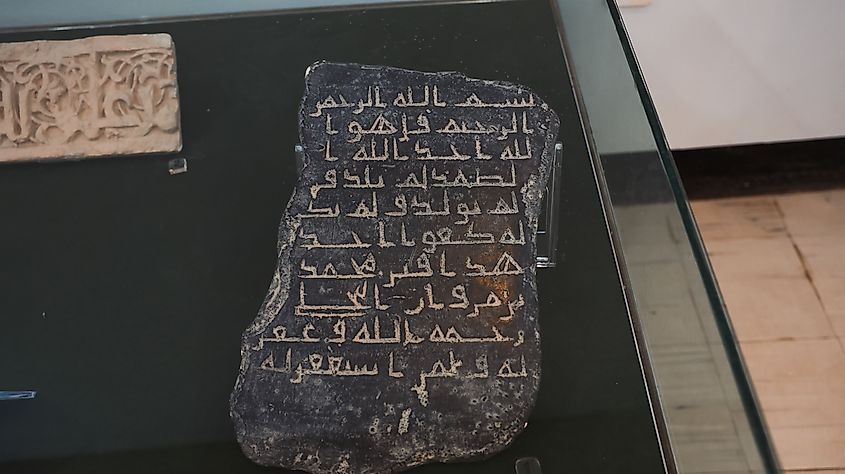 بسم الله الرحمن
الرحيم قل هو ا
لله احد الله ا
لصمد لم يلد و
لم يولد و لم يكن
له كفوا احد
هذا قبر محمد
بن مروان
رحمه الله و غفر
له و لمن استغفر له